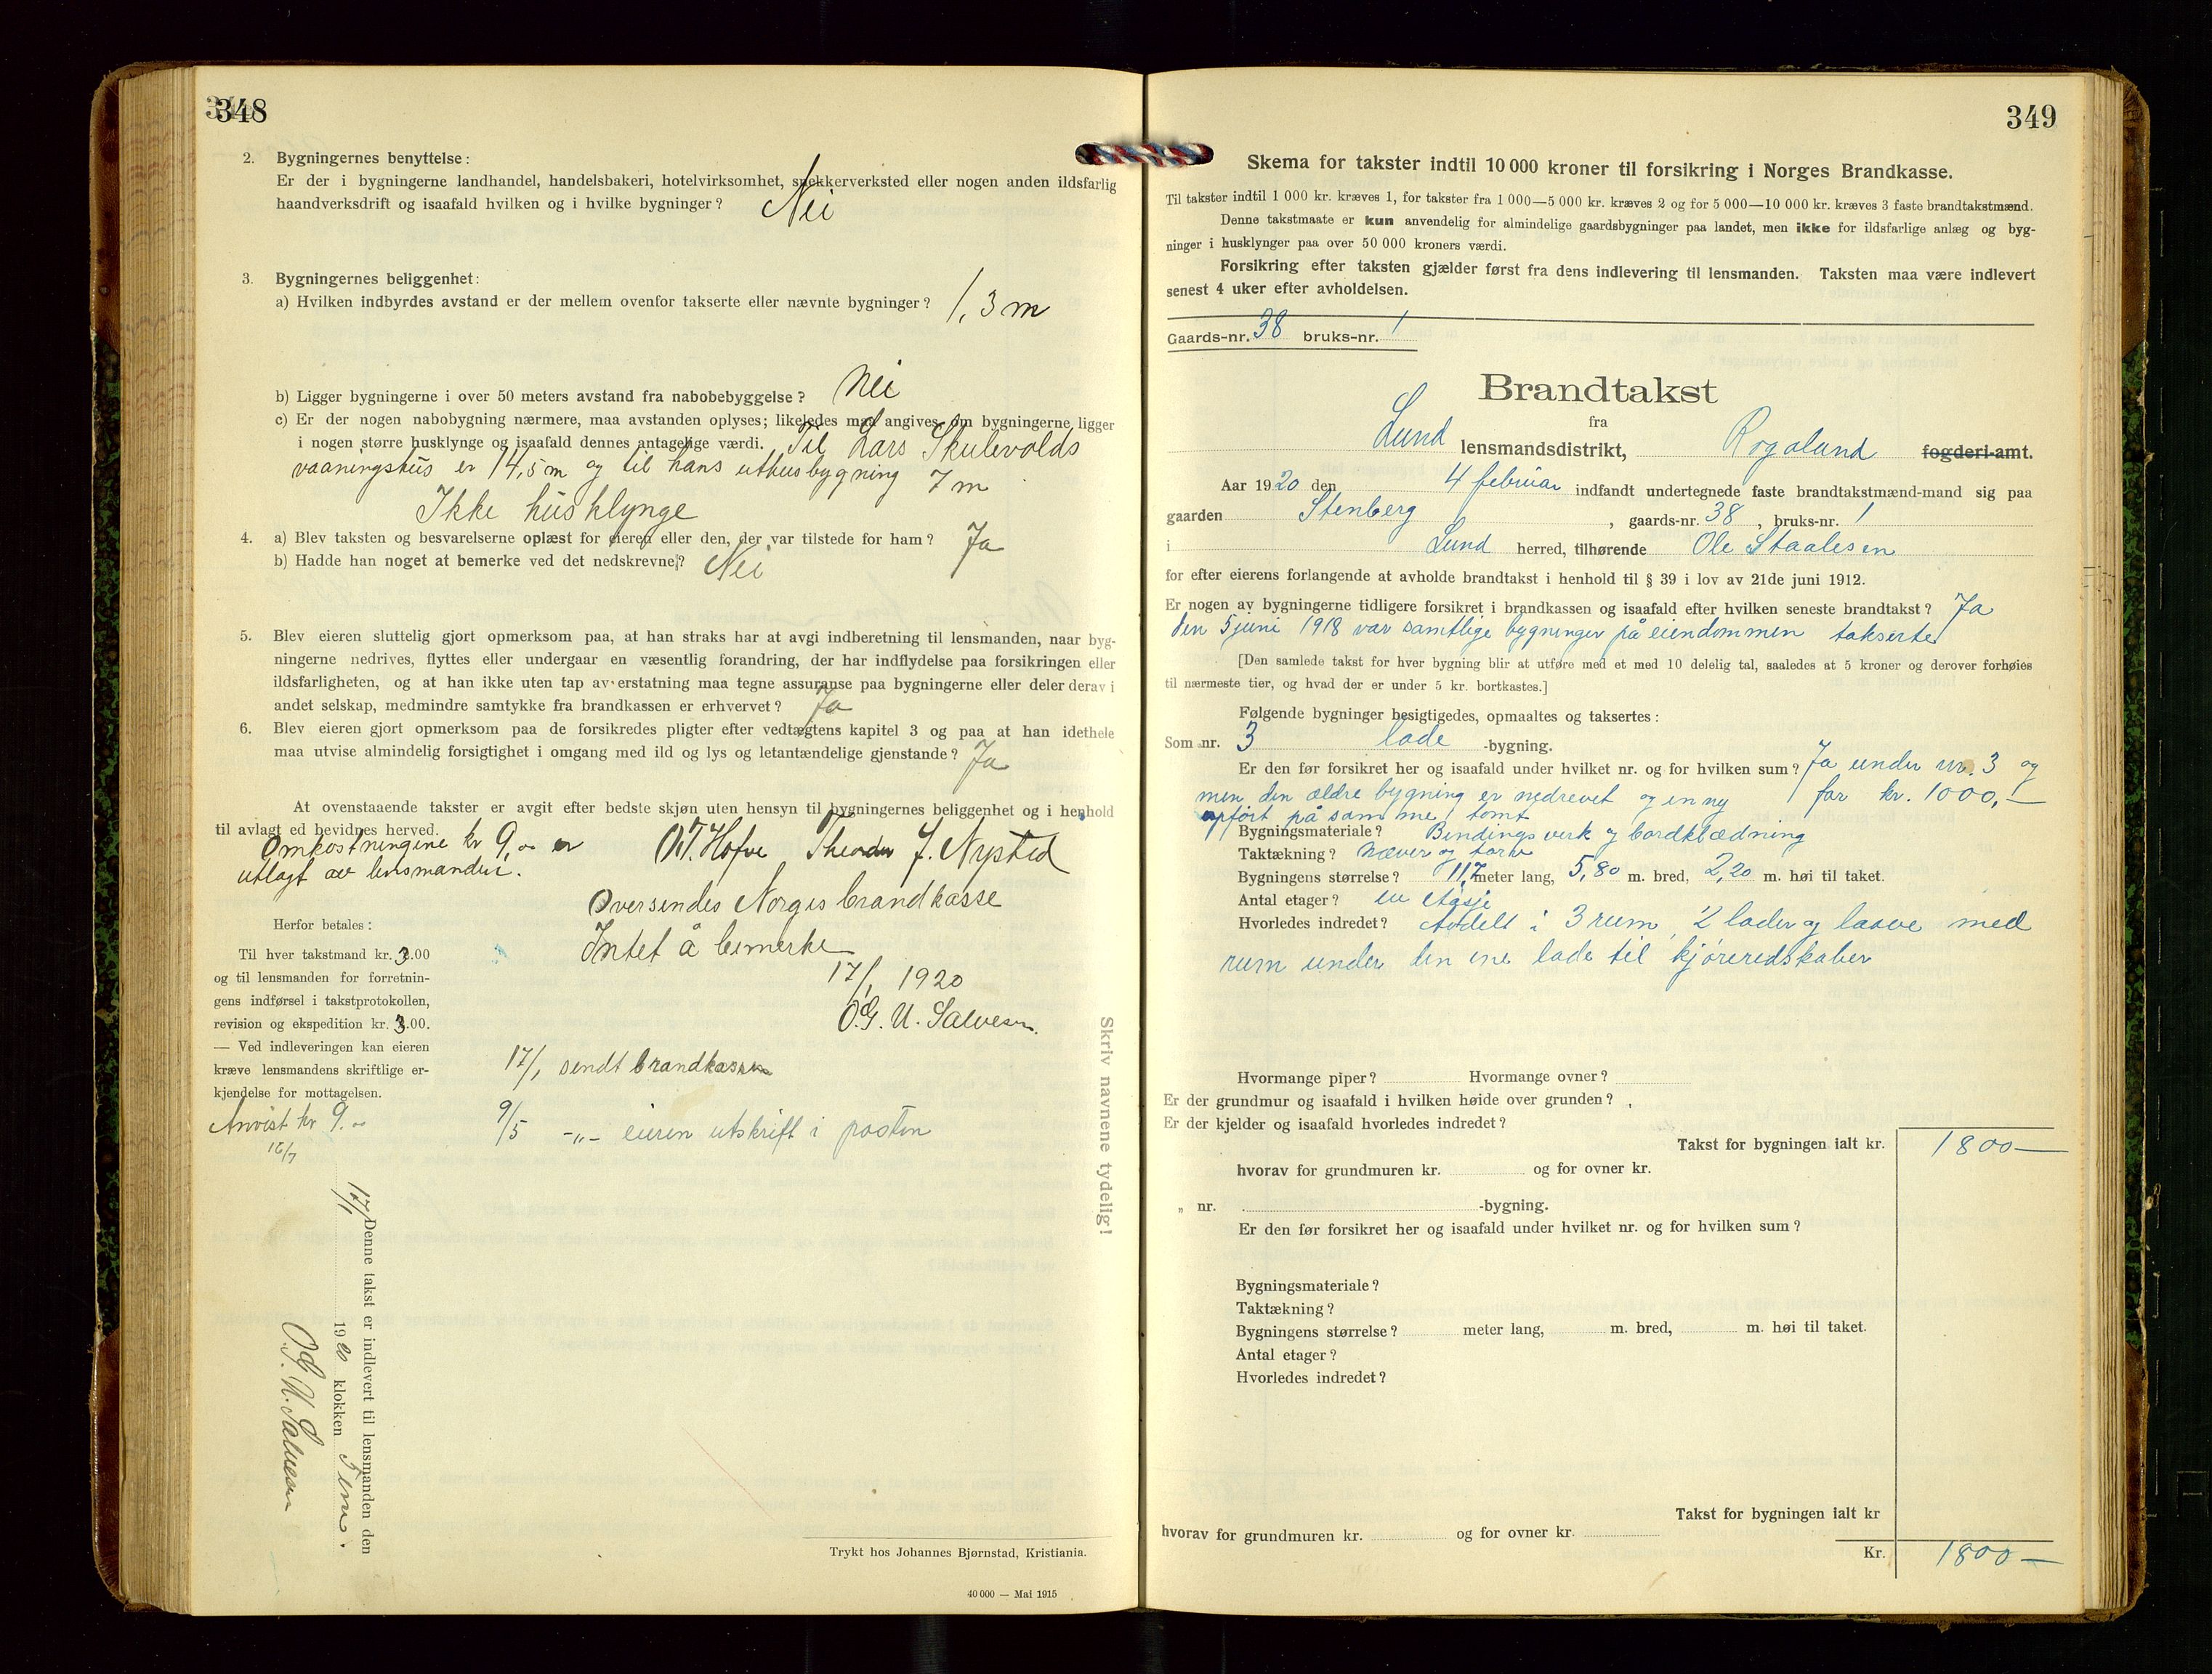 348
2. Bygningernes benyttelse:
Er der i bygningerne landhandel, handelsbakeri, hotelvirksomhet, snekkerverksted eller nogen anden ildsfarlig
haandverksdrift og isaafald hvilken og i hvilke bygninger? Nei
3. Bygningernes beliggenhet:
a) Hvilken indbyrdes avstand er der mellem ovenfor takserte eller nævnte bygninger? 1,3 m
b) Ligger bygningerne i over 50 meters avstand fra nabobebyggelse? Nei
c) Er der nogen nabobygning nærmere, maa avstanden oplyses; likeledes maa angives, om bygningerne ligger
i nogen større husklynge og isaafald dennes antagelige værdi. Til Lars Skulevolds
vaaningshus er 14,5 m og til hans uthusbygning 7 m
Ikke husklynge
4. a) Blev taksten og besvarelserne oplæst for eieren eller den, der var tilstede for ham? Ja
b) Hadde han noget at bemerke ved det nedskrevne? Nei
5. Blev eieren sluttelig gjort opmerksom paa, at han straks har at avgi indberetning til lensmanden, naar byg-
ningerne nedrives, flyttes eller undergaar en væsentlig forandring, der har indflydelse paa forsikringen eller
ildsfarligheten, og at han ikke uten tap av erstatning maa tegne assuranse paa bygningerne eller deler derav i
andet selskap, medmindre samtykke fra brandkassen er erhvervet? Ja
6. Blev eieren gjort opmerksom paa de forsikredes pligter efter vedtægtens kapitel 3 og paa at han idethele
maa utvise almindelig forsigtighet i omgang med ild og lys og letantændelige gjenstande? Ja
At ovenstaaende takster er avgit efter bedste skjøn uten hensyn til bygningernes beliggenhet og i henhold
til avlagt ed bevidnes herved.
Omkostningene kr 9,00 er
utlagt av lensmanden.
Theodor J. Nysted
Oversendes Norges brandkasse
Intet å bemerke
17/1 1920
O.G. U. Salvesen.
Herfor betales:
Til hver takstmand kr. 3.00
og til lensmanden for forretnin-
gens indførsel i takstprotokollen,
revision og ekspedition kr. 3.00.
— Ved indleveringen kan eieren
kræve lensmandens skriftlige er-
kjendelse for mottagelsen.
Anvist kr 9.00
16/7
17/1 sendt brandkassen
9/5 -"- eieren utskrift i posten
Skriv navnene tydelig!
Denne takst er indlevert til lensmanden den
17/1 1920 klokken Fem.
O.G. U. Salvesen
Trykt hos Johannes Bjørnstad, Kristiania.
40 000 — Mai 1915
349
Skema for takster indtil 10 000 kroner til forsikring i Norges Brandkasse.
Til takster indtil 1 000 kr. kræves 1, for takster fra 1 000—5 000 kr. kræves 2 og for 5 000—10 000 kr. kræves 3 faste brandtakstmænd.
Denne takstmaate er kun anvendelig for almindelige gaardsbygninger paa landet, men ikke for ildsfarlige anlæg og byg-
ninger i husklynger paa over 50 000 kroners værdi.
Forsikring efter taksten gjælder først fra dens indlevering til lensmanden. Taksten maa være indlevert
senest 4 uker efter avholdelsen.
Gaards-nr. 38 bruks-nr. 1
Brandtakst
fra
Lund lensmandsdistrikt, Rogaland fogderi-amt.
Aar 1920 den 4 februar indfandt undertegnede faste brandtakstmænd-mand sig paa
gaarden Stenberg, gaards-nr. 38, bruks-nr. 1
i Lund herred, tilhørende Ole Staalesen
for efter eierens forlangende at avholde brandtakst i henhold til § 39 i lov av 21de juni 1912.
Er nogen av bygningerne tidligere forsikret i brandkassen og isaafald efter hvilken seneste brandtakst? Ja
den 5 juni 1918 var samtlige bygninger på eiendommen takserte
[Den samlede takst for hver bygning blir at utføre med et med 10 delelig tal, saaledes at 5 kroner og derover forhøies
til nærmeste tier, og hvad der er under 5 kr. bortkastes.]
Følgende bygninger besigtigedes, opmaaltes og taksertes:
Som nr. 3 lade -bygning.
Er den før forsikret her og isaafald under hvilket nr. og for hvilken sum? Ja under nr. 3 og
men den ældre bygning er nedrevet og en ny for kr. 1000,—
opført på samme tomt
Bygningsmateriale? Bindingsverk og bordklædning
Taktækning? Næver og torv
Bygningens størrelse? 11,7 meter lang, 5,80 m. bred, 2,20 m. høi til taket.
Antal etager? en etasje
Hvorledes indredet? Avdelt i 3 rum, 2 lader og laave med
rum under den ene lade til kjøreredskaber
Hvormange piper? Hvormange ovner?
Er der grundmur og isaafald i hvilken høide over grunden?
Er der kjelder og isaafald hvorledes indredet?
Takst for bygningen ialt kr. 1800—
hvorav for grundmuren kr. og for ovner kr.
„ nr. -bygning.
Er den før forsikret her og isaafald under hvilket nr. og for hvilken sum?
Bygningsmateriale?
Taktækning?
Bygningens størrelse? meter lang, m. bred, m. høi til taket.
Antal etager?
Hvorledes indredet?
Takst for bygningen ialt kr
hvorav for grundmuren kr. og for ovner kr.
Kr. 1800—